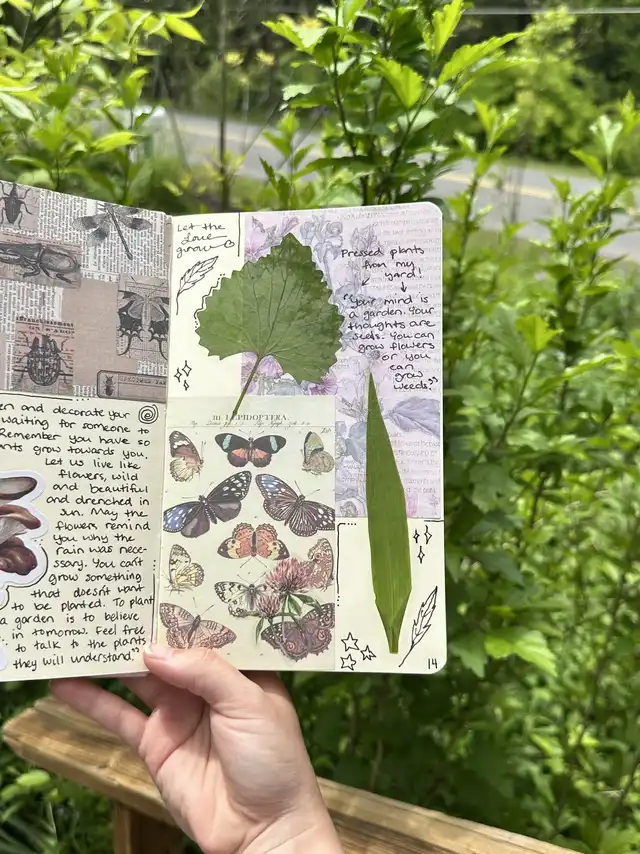 and decorate your
waiting for someone to
Remember you have so
grow towards you.
Let us live like
flowers, wild
and beautiful
and drenched in
sun. May the
flowers remind
you why the
rain was nece-
ssary. You can't
grow something
that doesn't want
to be planted. To plant
a garden is to believe
in tomorrow. Feel free
to talk to the plants
they will understand."
Let the
Love
grow
Pressed plants
from my
yard!
"Your mind is
a garden. Your
thoughts are
seeds. You can
grow flowers
or you
can
grow
weeds."
III. LEPIDOPTERA.
14